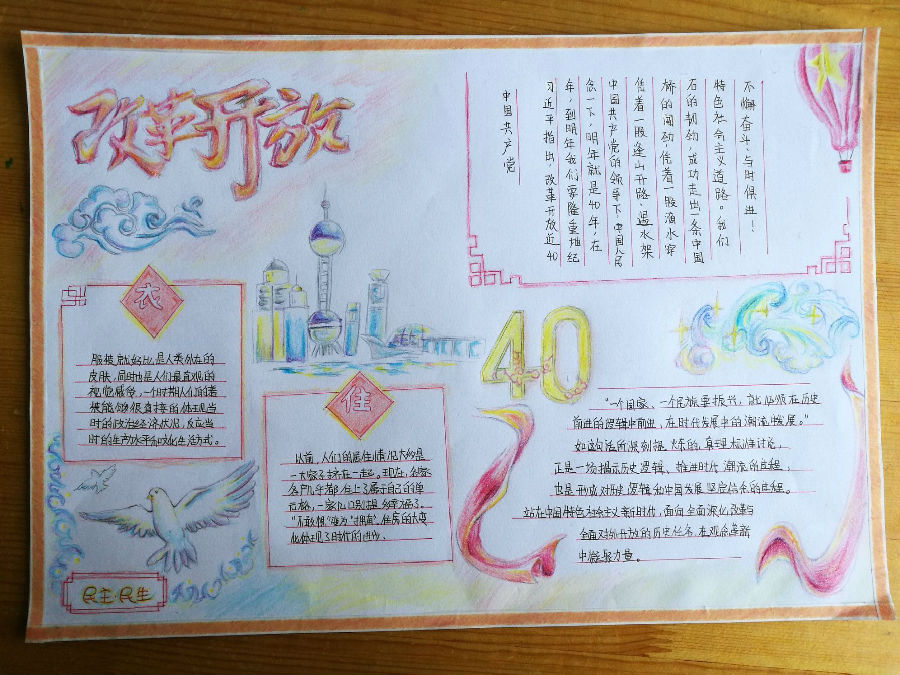 改革开放
中国共产党
习近平指出，改革开放近40
年，到明年我们要隆重地纪
念一下，明年就是40年，在
中国共产党的领导下，中国人民
凭着一股逢山开路、遇水架
桥的闯劲，凭着一股滴水穿
石的韧劲，成功走出一条中国
特色社会主义道路。我们
不懈奋斗、与时俱进！
衣
服装就好比是人类外在的
皮肤，同时也是人们最直观的
视觉感受，一个时期人们的着
装能够很直接的体现当
时的政治经济状况，反应当
时的生产水平和文化生活方式。
住
以前，人们的居住情况大均是
一大家子挤在一起。现在，家家
户户几乎都住上了属于自己的单
元楼，一家人们别提多幸福了。
化体现了时代的进步。
民主·民生
40
“一个国家、一个民族要振兴，就必须在历史
前进的逻辑中前进，在时代发展中的潮流中发展。”
正是一场揭示历史逻辑、推进时代潮流的应程，
也是形成对历史逻辑和中国发展坚定信念的应程。
站在中国特色社会主义新时代，面向全面深化改革与
全面对外开放的历史任务，在观念革新
中凝聚力量。